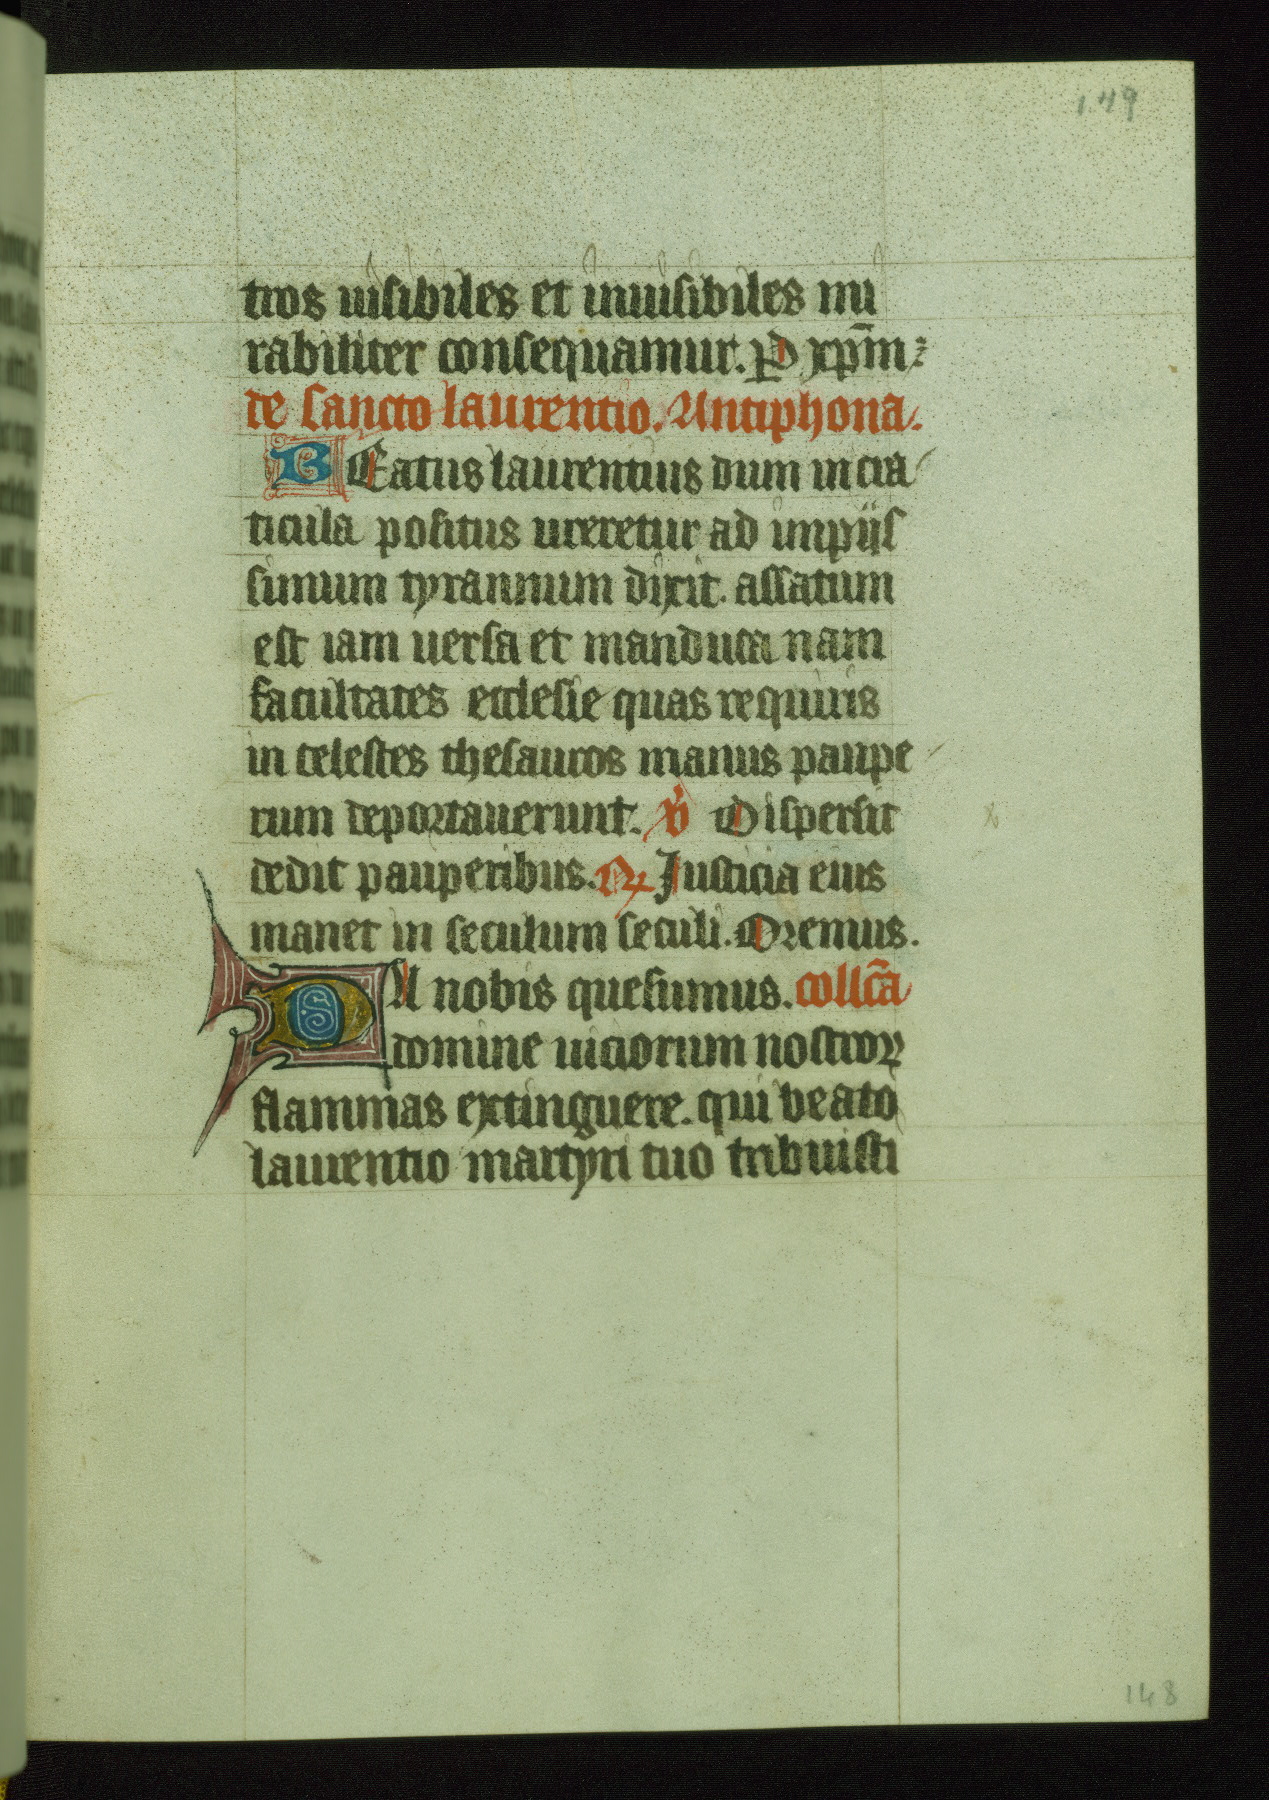 149
tros uisibiles et inuisibiles mi
rabiliter consequamur. P xp̄m
de sancto laurentio. Antiphona.
BEatus laurentius dum in cra
ticula positus ureretur ad impiis
simum tyrannum dixit. assatum
est iam uersa et manduca nam
facultates ecclesie quas requiris
in celestes thesauros manus paupe
rum deportauerunt. ℣ Dispersit
dedit pauperibus. ℟ Justicia eius
manet in seculum seculi. Oremus.
DA nobis quesumus. collc̄a
domine uiciorum nostroꝝ
flammas extinguere. qui beato
laurentio martyri tuo tribuisti
148